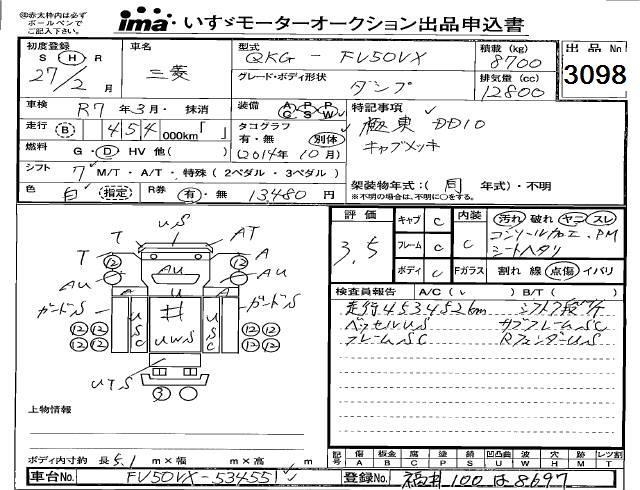 ㊟赤太枠内は必ず
ボールペンで
ご記入下さい。
ima いすゞモーターオークション出品申込書
初度登録 S Ⓗ R 27/2月
車名 三菱
型式 QKG - FV50VX
グレード・ボディ形状 ダンプ
積載 (kg) 8700
排気量 (cc) 12800
出品 No 3098
車検 R7年3月・抹消
装備 A/C P/S P/W
走行 Ⓑ 454 000km「 」
タコグラフ 有・無 別体
(2014年10月)
燃料 G・Ⓓ HV 他( )
シフト 7 M/T・A/T・特殊(2ペダル・3ペダル)
色 白 指定 R券 有・無 13480円
特記事項
極東 DD10
キャブメッキ
架装物年式:(同 年式)・不明
※不明の場合は、不明に○をする。
評価 3.5
キャブ C
フレーム C
ボディ C
内装 C
Fガラス
汚れ 破れ ヤニ スレ
コンソール加工.PM
シートヘタリ
割れ 線 点傷 イバリ
検査員報告 A/C(レ ) B/T( )
走行453452km シフト7段M/T
ベッセルUS サブフレームSC
フレームSC RフェンダーUS
US
T T AT A
⑫ ⑫
AU AU AU
A A
ガードS ガードS
USC 井 USC
UWS
⑫⑫ ⑫⑫
⑫⑫ ⑫⑫
UTS
③
上物情報
ボディ内寸約 長5.1m×幅 m×高 m
記号 傷A 板金B 腐C 塗P 錆S 凹凸曲U 波W 穴H 跡M レンズ割T
車台No. FV50VX-534551
登録No. 福井 100 は 8697